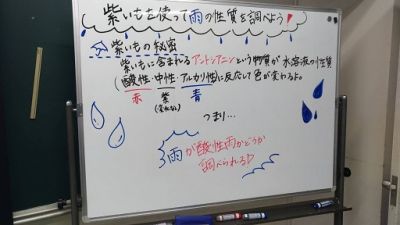 紫いもを使って雨の性質を調べよう!
紫いもの秘密
紫いもに含まれるアントシアニンという物質が水溶液の性質
(酸性・中性・アルカリ性)に反応して色が変わるよ。
赤 紫 青
(変化なし)
つまり…
雨が酸性雨かどうか
調べられる♪